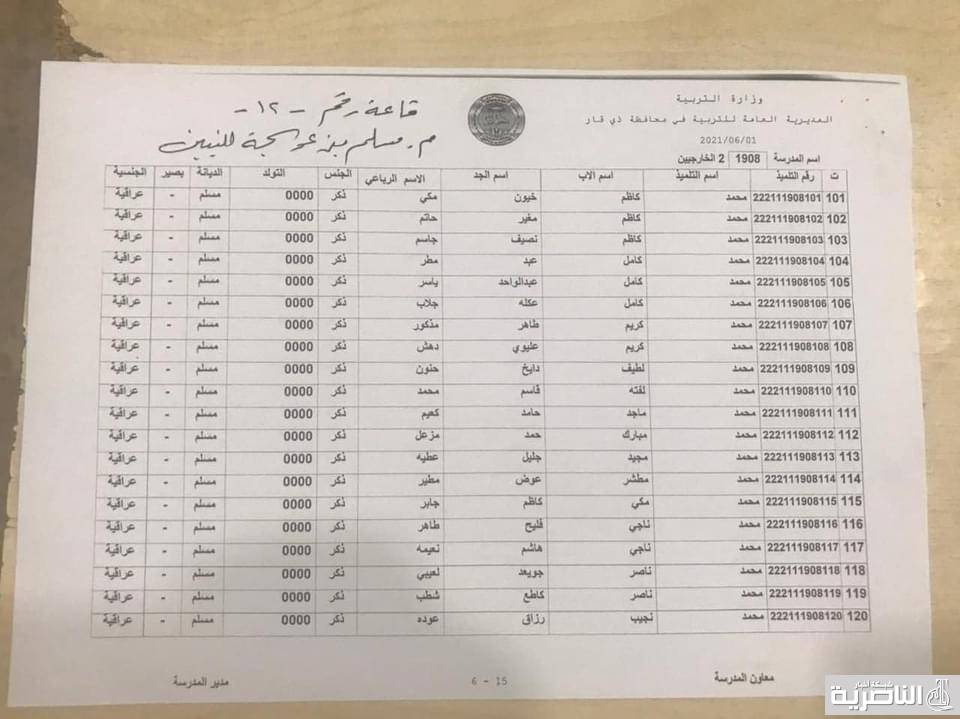 وزارة التربية
المديرية العامة للتربية في محافظة ذي قار
2021/06/01
قاعة رقم -١٢-
م. مسلم بن عوسجة للبنين
اسم المدرسة 1908 2 الخارجيين
ت رقم التلميذ اسم التلميذ اسم الاب اسم الجد الاسم الرباعي الجنس التولد الديانة بصير الجنسية
101 222111908101 محمد كاظم خيون مكي ذكر 0000 مسلم - عراقية
102 222111908102 محمد كاظم مغير حاتم ذكر 0000 مسلم - عراقية
103 222111908103 محمد كاظم نصيف جاسم ذكر 0000 مسلم - عراقية
104 222111908104 محمد كامل عبد مطر ذكر 0000 مسلم - عراقية
105 222111908105 محمد كامل عبدالواحد ياسر ذكر 0000 مسلم - عراقية
106 222111908106 محمد كامل عكله جلاب ذكر 0000 مسلم - عراقية
107 222111908107 محمد كريم طاهر مذكور ذكر 0000 مسلم - عراقية
108 222111908108 محمد كريم عليوي دهش ذكر 0000 مسلم - عراقية
109 222111908109 محمد لطيف دايخ حنون ذكر 0000 مسلم - عراقية
110 222111908110 محمد لفته قاسم محمد ذكر 0000 مسلم - عراقية
111 222111908111 محمد ماجد حامد كعيم ذكر 0000 مسلم - عراقية
112 222111908112 محمد مبارك حمد مزعل ذكر 0000 مسلم - عراقية
113 222111908113 محمد مجيد جليل عطيه ذكر 0000 مسلم - عراقية
114 222111908114 محمد مطشر عوض مطير ذكر 0000 مسلم - عراقية
115 222111908115 محمد مكي كاظم جابر ذكر 0000 مسلم - عراقية
116 222111908116 محمد ناجي فليح طاهر ذكر 0000 مسلم - عراقية
117 222111908117 محمد ناجي هاشم نعيمه ذكر 0000 مسلم - عراقية
118 222111908118 محمد ناصر جويعد لعيبي ذكر 0000 مسلم - عراقية
119 222111908119 محمد ناصر كاطع شطب ذكر 0000 مسلم - عراقية
120 222111908120 محمد نجيب رزاق عوده ذكر 0000 مسلم - عراقية
معاون المدرسة
6 - 15
مدير المدرسة
شبكة أخبار
الناصرية